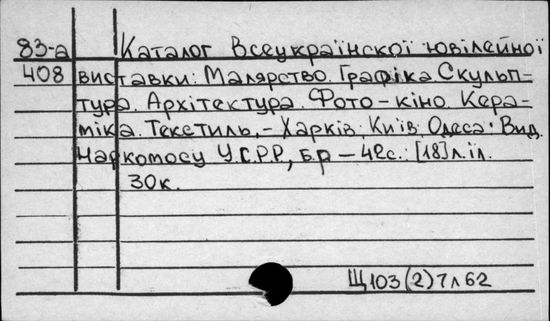 83-а Каталог Всеукраїнскої ювілейної
408 виставки: Малярство. Графіка Скульп-
тура. Архітектура. Фото-кіно. Кера-
міка. Текстиль. - Харків. Київ. Одеса: Вид.
Наркомосу У.С.Р.Р., б.р - 42с.: [18]л.іл.
30к.
Щ103(2)7л62